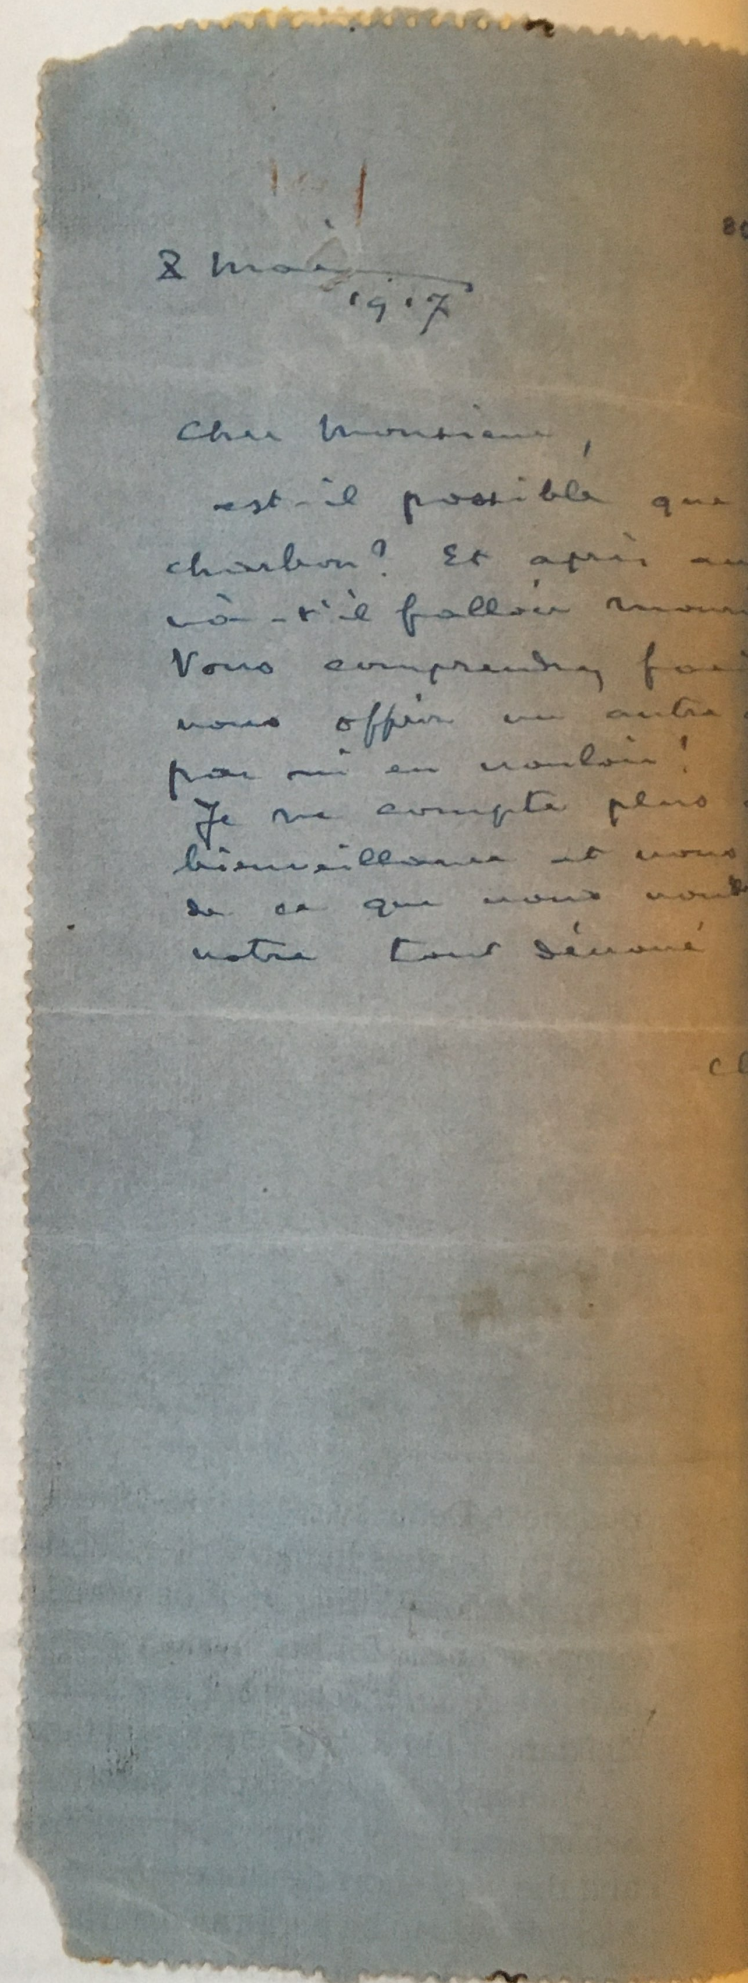 8 mai
1917
80
Cher Monsieur,
est-il possible que
charbon? Et après
va-t'il falloir
Vous comprendrez
vous offrir un autre
par ni en vouloir!
Je ne compte plus
bienveillance et vous
de ce que vous
votre tout dévoué
Cl